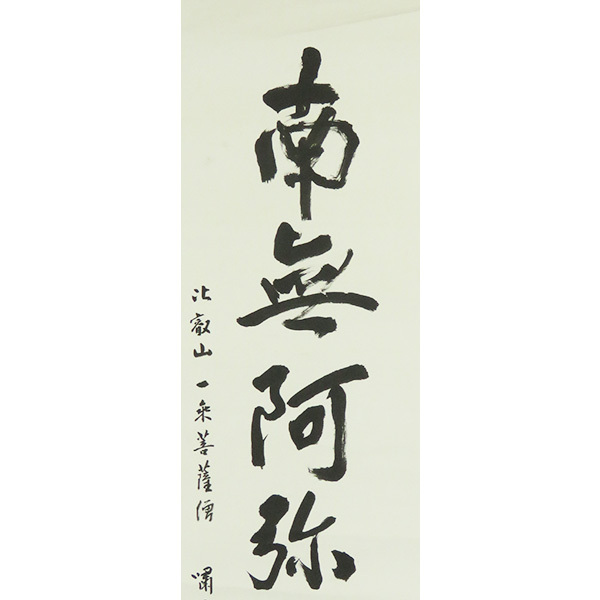 南無阿弥
比叡山 一乗菩薩僧 嘯